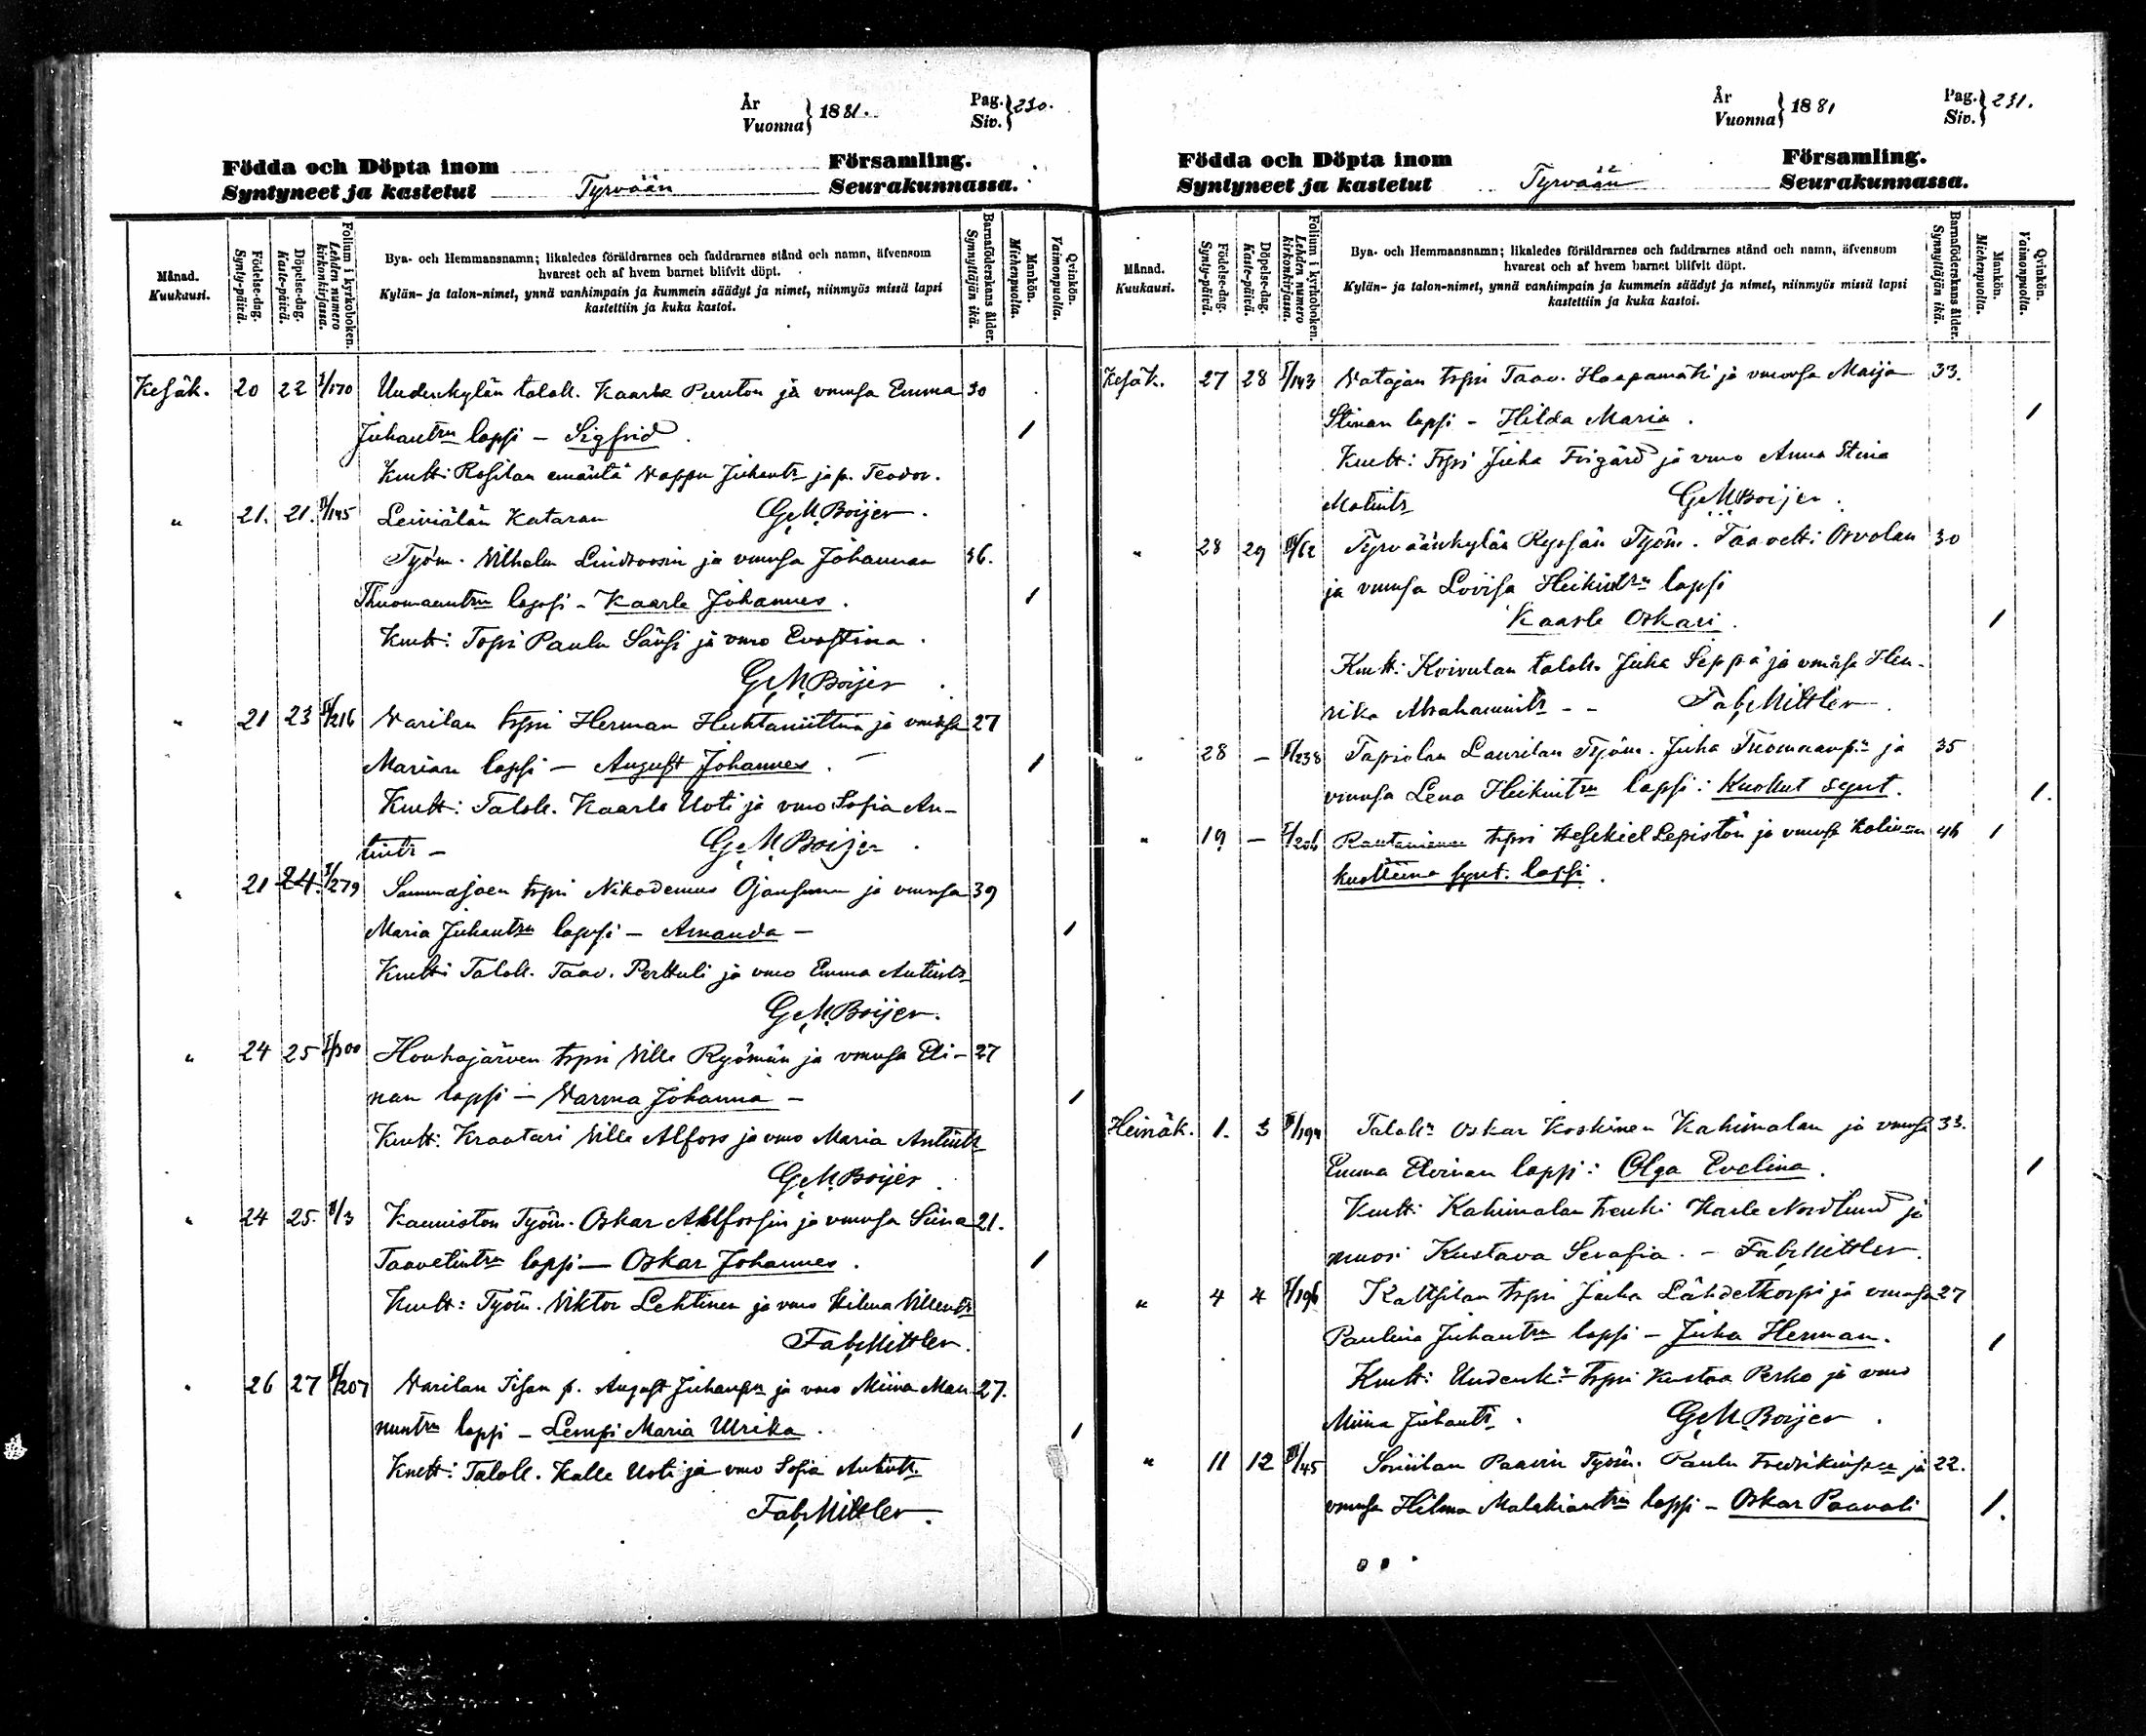 År
Vuonna} 1881.
Pag.
Siv.} 230.
Födda och Döpta inom
Syntyneet ja kastetut Tyrvään
Församling.
Seurakunnassa.
Månad.
Kuukausi.
Födelse-dag.
Synty-päivä.
Döpelse-dag.
Kaste-päivä.
Folium i kyrkoboken.
Lehden numero kirkonkirjassa.
Bya- och Hemmansnamn; likaledes föräldrarnes och faddrarnes stånd och namn, äfvensom
hvarest och af hvem barnet blifvit döpt.
Kylän- ja talon-nimet, ynnä vanhimpain ja kummein säädyt ja nimet, niinmyös missä lapsi
kastettiin ja kuka kastoi.
Barnaföderskans ålder.
Synnyttäjän ikä.
Mankön.
Miehenpuolta.
Qvinkön.
Vaimonpuolta.
Kesäk. 20 22 I/170 Uudenkylän talok. Kaarle Punton ja vmonsa Emma 30
Juhantrn lapsi – Sigfrid. 1
Kmtt: Rosilan emäntä Vappu Juhantr ja p. Teodor.
" 21. 21. II/145 Leiniälän Kataran G. M. Boijer.
Työm. Vilhelm Lindroosin ja vmonsa Johannan 36.
Thuomaantrn lapsi – Kaarle Johannes. 1
Kmtt: Tspri Paulu Sänsi ja vmo Evastina.
G. M. Boijer.
" 21 23 II/216 Varilan tspri Herman Huhtaniittun ja vmonsa 27
Marian lapsi – August Johannes. – 1
Kmtt: Talok. Kaarle Uoti ja vmo Sofia An-
tintr – G. M. Boijer.
" 21 24. I/279 Sammaljoen tspri Nikodemus Ojansuun ja vmonsa 39
Maria Juhantrn lapsi – Amanda – 1
Kmtt: Talok. Taav. Perttuli ja vmo Emma Antintr
G. M. Boijer.
" 24 25 I/300 Houhajärven tspri Ville Ryömän ja vmonsa Eli- 27
nan lapsi – Varma Johanna – 1
Kmtt: Kraatari Ville Alfors ja vmo Maria Antintr
G. M. Boijer.
" 24 25. II/3 Kauniston Työm. Oskar Ahlforsin ja vmonsa Siina 21.
Taavetintrn lapsi – Oskar Johannes. 1
Kmtt: Työm. Viktor Lehtinen ja vmo Hilma Villentr
Fab. Mittler.
" 26 27 II/207 Varilan Tisan p. August Juhanpn ja vmo Miina Man 27.
nuntrn lapsi – Lempi Maria Ulrika. 1
Kmtt: Talok. Kalle Uoti ja vmo Sofia Antintr.
Fab. Mittler.
År
Vuonna} 1881
Pag.
Siv.} 231.
Födda och Döpta inom
Syntyneet ja kastetut Tyrvään
Församling.
Seurakunnassa.
Månad.
Kuukausi.
Födelse-dag.
Synty-päivä.
Döpelse-dag.
Kaste-päivä.
Folium i kyrkoboken.
Lehden numero kirkonkirjassa.
Bya- och Hemmansnamn; likaledes föräldrarnes och faddrarnes stånd och namn, äfvensom
hvarest och af hvem barnet blifvit döpt.
Kylän- ja talon-nimet, ynnä vanhimpain ja kummein säädyt ja nimet, niinmyös missä lapsi
kastettiin ja kuka kastoi.
Barnaföderskans ålder.
Synnyttäjän ikä.
Mankön.
Miehenpuolta.
Qvinkön.
Vaimonpuolta.
Kesäk. 27 28 I/143 Vatajan tspri Taav. Haapamäki ja vmonsa Maija 33.
Stinan lapsi – Hilda Maria. 1
Kmtt: Tspri Juha Frigård ja vmo Anna Stina
Matintr G. M. Boijer.
" 28 29 III/62 Tyrväänkylän Ryssän Työm. Taavetti Orvolan 30
ja vmonsa Lovisa Heikintrn lapsi
Kaarle Oskari. 1
Kmtt: Koivulan talok. Juha Seppä ja vmonsa Hen-
rika Abrahamintr – – Fab. Mittler.
" 28 – II/238 Tapiolan Laurilan Työm. Juha Tuomaanpn ja 35
vmonsa Lena Heikintrn lapsi: Kuollut synt. 1.
" 19 – I/206 Rautaniemen tspri Hesekiel Lepistön ja vmonsa 46 1
kuolleena synt. lapsi.
Heinäk. 1. 3 Talokn Oskar Koskinen Kahimalan ja vmonsa 33.
Emma Elvinan lapsi: Olga Evelina. 1
Kmtt: Kahimalan trenki Kaarle Nordlund ja
muori Kustava Serafia. – Fab. Mittler.
" 4 4 I/196 Kaltsilan tspri Juha Lähdekorpi ja vmonsa 27
Paulina Juhantrn lapsi – Juha Herman. 1
Kmtt: Uudenkn tspri Kustaa Perko ja vmo
Miina Juhantr. G. M. Boijer.
" 11 12 III/45 Soinilan Paavin Työm. Paulu Fredrikinpn ja 22.
vmonsa Hilma Malakiantrn lapsi – Oskar Paavali 1.